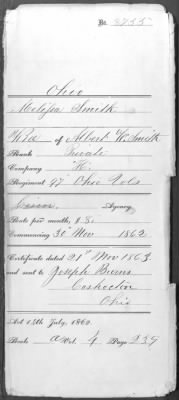 No. 8755
Ohio
Melissa Smith
Wid of Albert W. Smith
Rank Private
Company "H"
Regiment 97 Ohio Vols
Agency
Rate per month, $8.
Commencing 30 Nov 1862
Certificate dated 21st Nov 1863
and sent to Joseph Burns
Coshocton
Ohio
Act 14th July, 1862.
Book A Vol. 4 Page 239